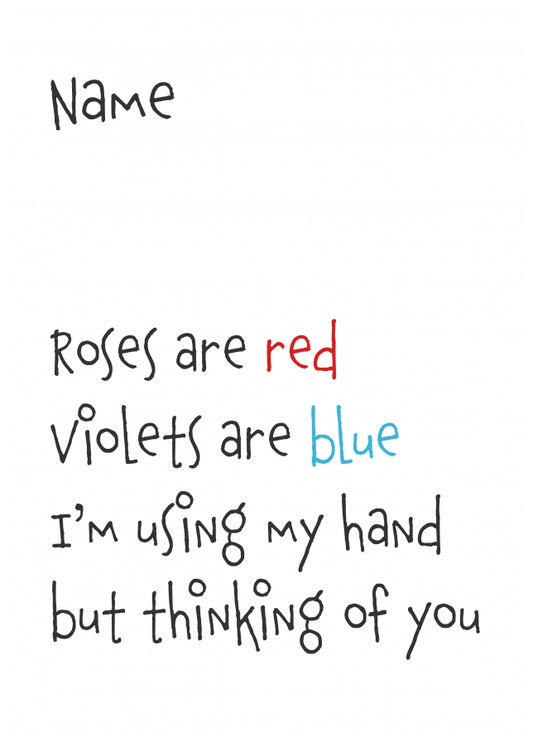 Name
Roses are red
Violets are blue
I'm using my hand
but thinking of you